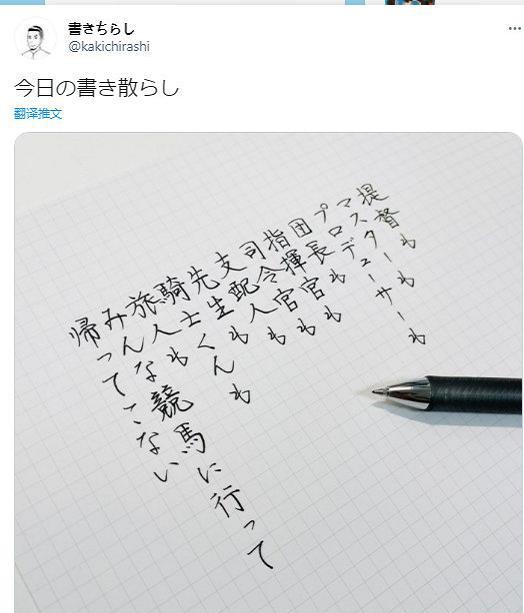 書きちらし
@kakichirashi
今日の書き散らし
翻译推文
提督も
マスターも
プロデューサーも
団長も
指揮官も
司令官も
支配人も
先生も
騎士くんも
旅人も
みんな競馬に行って
帰ってこない